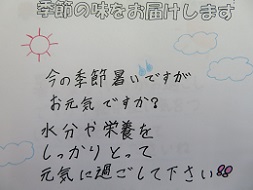 季節の味をお届けします
今の季節暑いですが
お元気ですか？
水分や栄養を
しっかりとって
元気に過ごして下さい!!